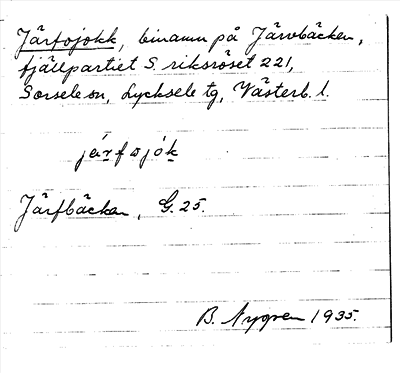 Järfojokk, binamn på Järvbäcken,
fjällpartiet S riksröset 221,
Sorsele sn, Lycksele tg, Västerb. l.
järfojok
Järfbäcken, G. 25.
B. Nygren 1935.